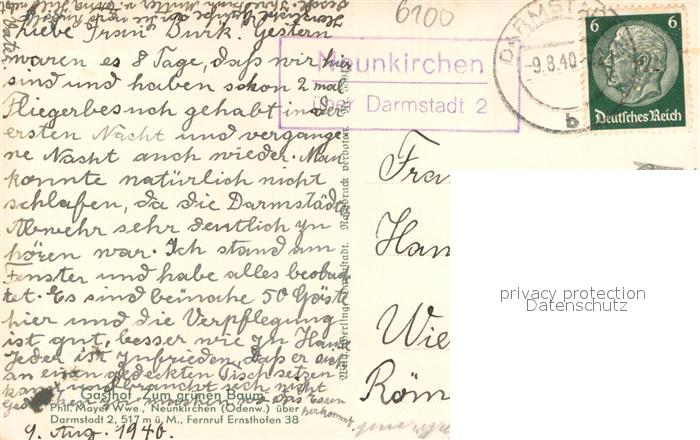 6100
Liebe Frau Burk! Gestern
waren es 8 Tage, daß wir hier
sind und haben schon 2 mal
Fliegerbesuch gehabt in der
ersten Nacht und vergange
ne Nacht auch wieder. Man
konnte natürlich nicht
schlafen, da die Darmstädter
Abwehr sehr deutlich zu
hören war. Ich stand am
Fenster und habe alles beobach
tet. Es sind beinahe 50 Gäste
hier und die Verpflegung
ist gut, besser wie zu Hause
Jeder ist zufrieden, daß er sich
an einen gedeckten Tisch setzen
kann und braucht sich nicht
Gedanken zu machen wo das Essen
herkommt.
9. Aug. 1940.
Gasthof "Zum grünen Baum"
Phil. Mayer Wwe., Neunkirchen (Odenw.) über
Darmstadt 2, 517 m ü. M., Fernruf Ernsthofen 38
Neunkirchen
über Darmstadt 2
DARMSTADT
-9.8.40.
b
6 6
Deutsches Reich
Nachdruck verboten.
Frau
Wie
Röm
privacy protection
Datenschutz